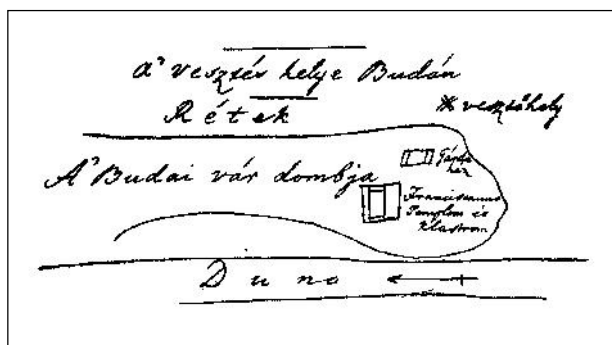 A' vesztés helye Budán
Rétek
* vesztőhely
A' Budai vár dombja
ház
Franciscanus
Templom és
Klastrom
Duna